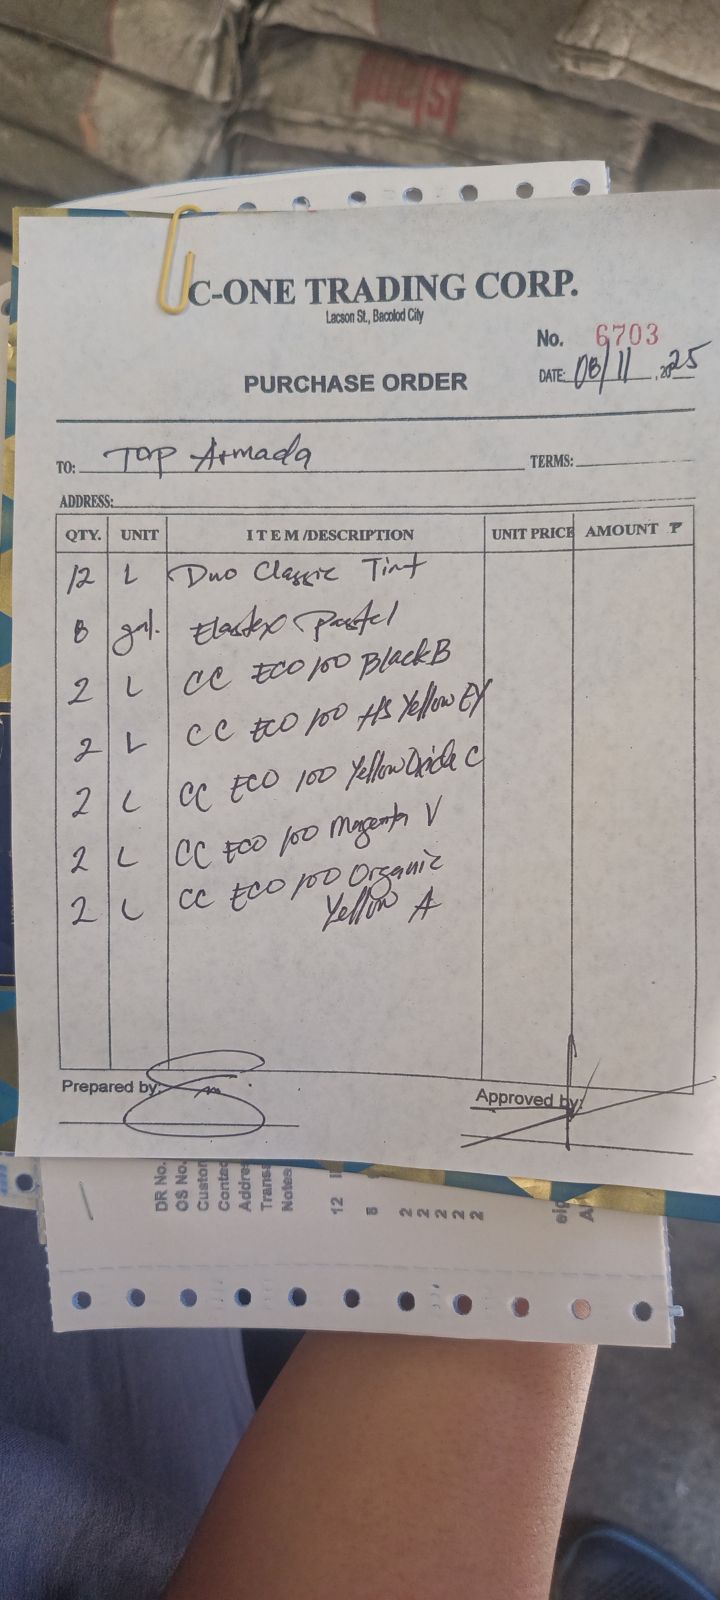 Island
C-ONE TRADING CORP.
Lacson St., Bacolod City
No. 6703
DATE: 08/11, 2025
PURCHASE ORDER
TO: Top Armada TERMS:
ADDRESS:
QTY. UNIT ITEM/DESCRIPTION UNIT PRICE AMOUNT ₱
12 L Duo Classic Tint
8 gal. Elastex Pastel
2 L CC ECO 100 Black B
2 L CC ECO 100 HS Yellow EY
2 L CC ECO 100 Yellow Oxide C
2 L CC ECO 100 Magenta V
2 L CC ECO 100 Organic
Yellow A
Prepared by:
Approved by:
DR No.
OS No.
Custom
Contac
Addre
Trans
Notes
12
8
2
2
2
2
2